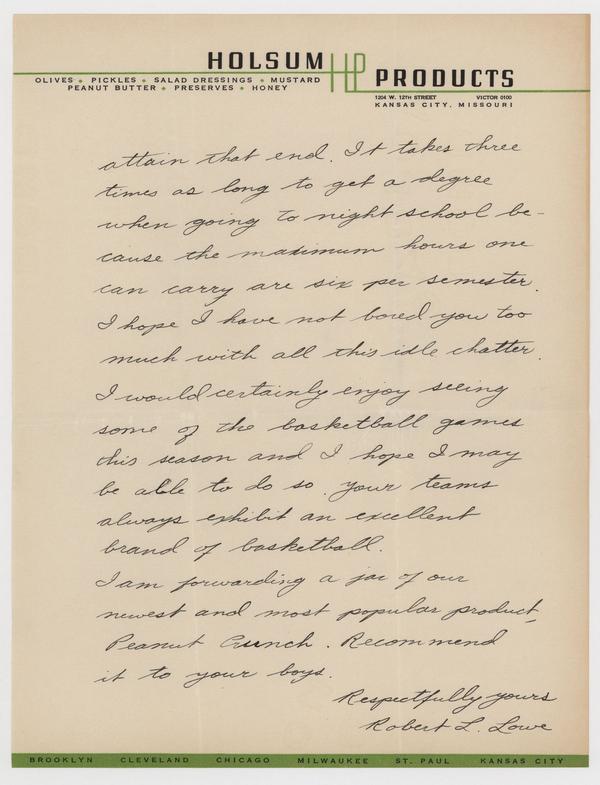 HOLSUM HP PRODUCTS
OLIVES • PICKLES • SALAD DRESSINGS • MUSTARD
PEANUT BUTTER • PRESERVES • HONEY
1204 W. 12TH STREET VICTOR 0100
KANSAS CITY, MISSOURI
attain that end. It takes three
times as long to get a degree
when going to night school be-
cause the maximum hours one
can carry are six per semester.
I hope I have not bored you too
much with all this idle chatter.
I would certainly enjoy seeing
some of the basketball games
this season and I hope I may
be able to do so. Your teams
always exhibit an excellent
brand of basketball.
I am forwarding a jar of our
newest and most popular product,
Peanut Crunch. Recommend
it to your boys.
Respectfully yours
Robert L. Lowe
BROOKLYN CLEVELAND CHICAGO MILWAUKEE ST. PAUL KANSAS CITY